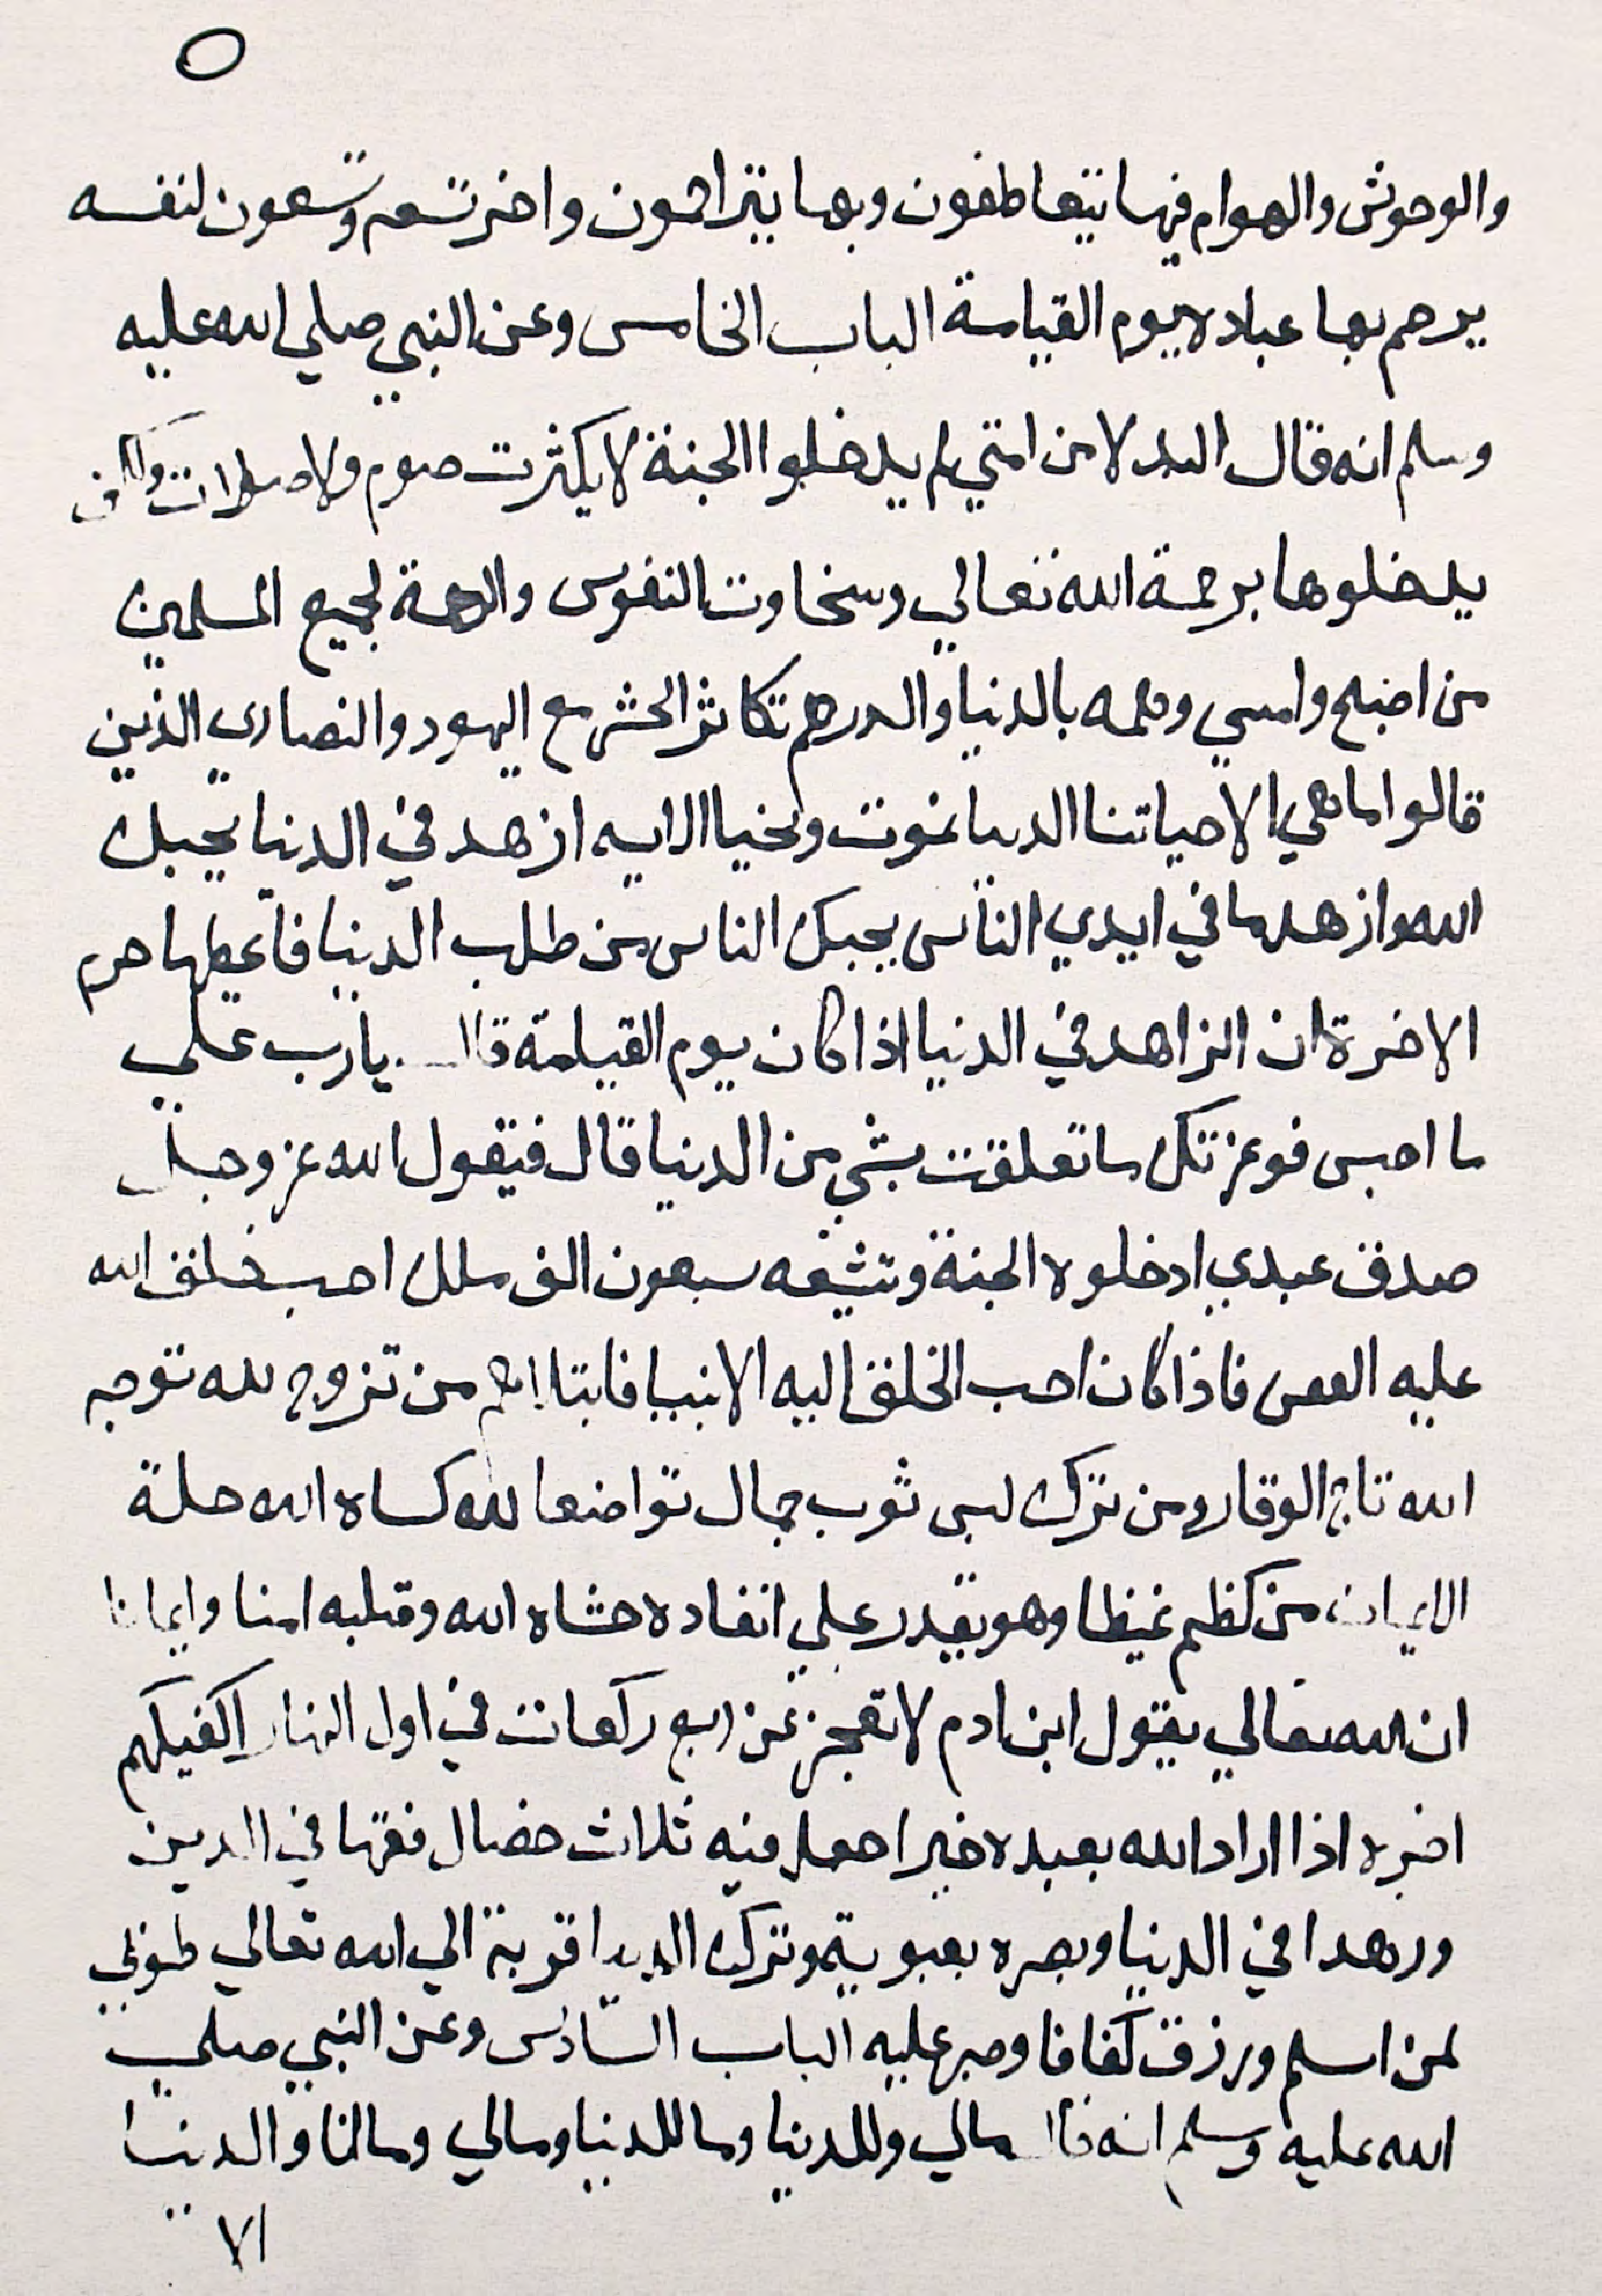 ٥
والوحوش والهوام فبها يتعاطفون وبها يتراحمون واخر تسعه وتسعون لنفسه
يرحم بها عباده يوم القيامة الباب الخامس وعن النبي صلي الله عليه
وسلم انه قال البدلا من امتي لم يدخلوا الجنة لا يكثرت صوم ولا صلوات ولكن
يدخلوها برحمة الله تعالي وسخاوت النفوس والرحمة لجميع المسلمين
من اصبح وامسي وهمه بالدنيا والدرهم تكاثر الحشر مع اليهود والنصاري الذين
قالوا ما هي الا حياتنا الدنيا نموت ونحيا الايه ازهد في الدنيا يحبك
الله وازهد ما في ايدي الناس يحبك الناس من طلب الدنيا فاعطيها حرم
الاخرة ان الزاهد في الدنيا اذا كان يوم القيامة قال يارب علي
ما احبس فوعزتك ما تعلقت بشي من الدنيا قال فيقول الله عز وجل
صدق عبدي ادخلوه الجنة وتشيعه سبعون الف ملك احب خلق الله
عليه الفقر فاذا كان احب الخلق اليه الانبيا فابتلاهم من تزوج لله توجه
الله تاج الوقار ومن ترك لبس ثوب جمال تواضعا لله كساه الله حلة
الايمان من كظم غيظا وهو يقدر علي انفاده حشاه الله وقلبه امنا وايمانا
ان الله تعالي يقول ابن ادم لا تعجز عن اربع ركعات في اول النهار اكفيكهم
اخره اذا اراد الله بعبده خيرا جعل فيه ثلاث خصال فقها في الدين
وزهدا في الدنيا وبصره بعبوبيته وترك الدنيا قربة الي الله تعالي طوبي
لمن اسلم ورزق كفافا وصبر عليه الباب السادس وعن النبي صلي
الله عليه وسلم انه قال مالي وللدنيا وما للدنيا ومالي ومالنا والدنيا